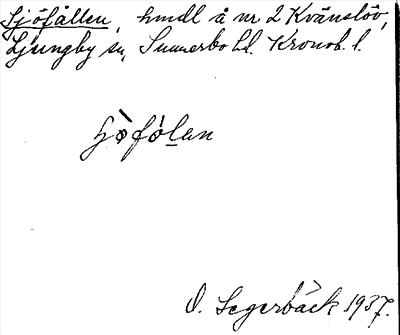 Sjöfållen, hmdl å nr 2 Kvänslöv,
Ljungby sn, Sunnerbo hd. Kronob. l.
O. Segerbäck 1937.